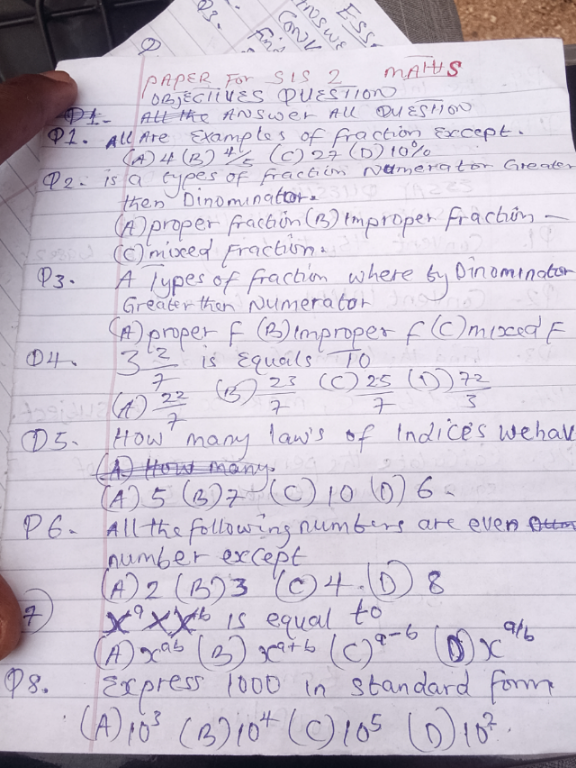 ESS
ANSWE
CONV
Q3.
PAPER FOR SIS 2 MATHS
OBJECTIVES QUESTION
Q1. All the ANSWER All QUESTION
Q1. All Are Examples of fraction Except.
(A) 4 (B) 4/5 (C) 27 (D) 10%
Q2. is a types of fraction Numerator Greater
then Dinominator.
(A) proper fraction (B) Improper fraction
(C) mixed fraction.
Q3. A Types of fraction where by Dinominator
Greater then Numerator
(A) proper f (B) Improper f (C) mixed F
Q4. 3 2/7 is Equals TO
(A) 22/7 (B) 23/7 (C) 25/7 (D) 72/3
Q5. How many law's of Indices we hav
(A) How many.
(A) 5 (B) 7 (C) 10 (D) 6.
Q6. All the following numbers are even
number except
(A) 2 (B) 3 (C) 4. (D) 8
7 xᵃ X xᵇ is equal to
(A) xᵃᵇ (B) xᵃ⁺ᵇ (C) ᵃ⁻ᵇ (D) x^a/b
Q8. Express 1000 in standard form
(A) 10³ (B) 10⁴ (C) 10⁵ (D) 10².